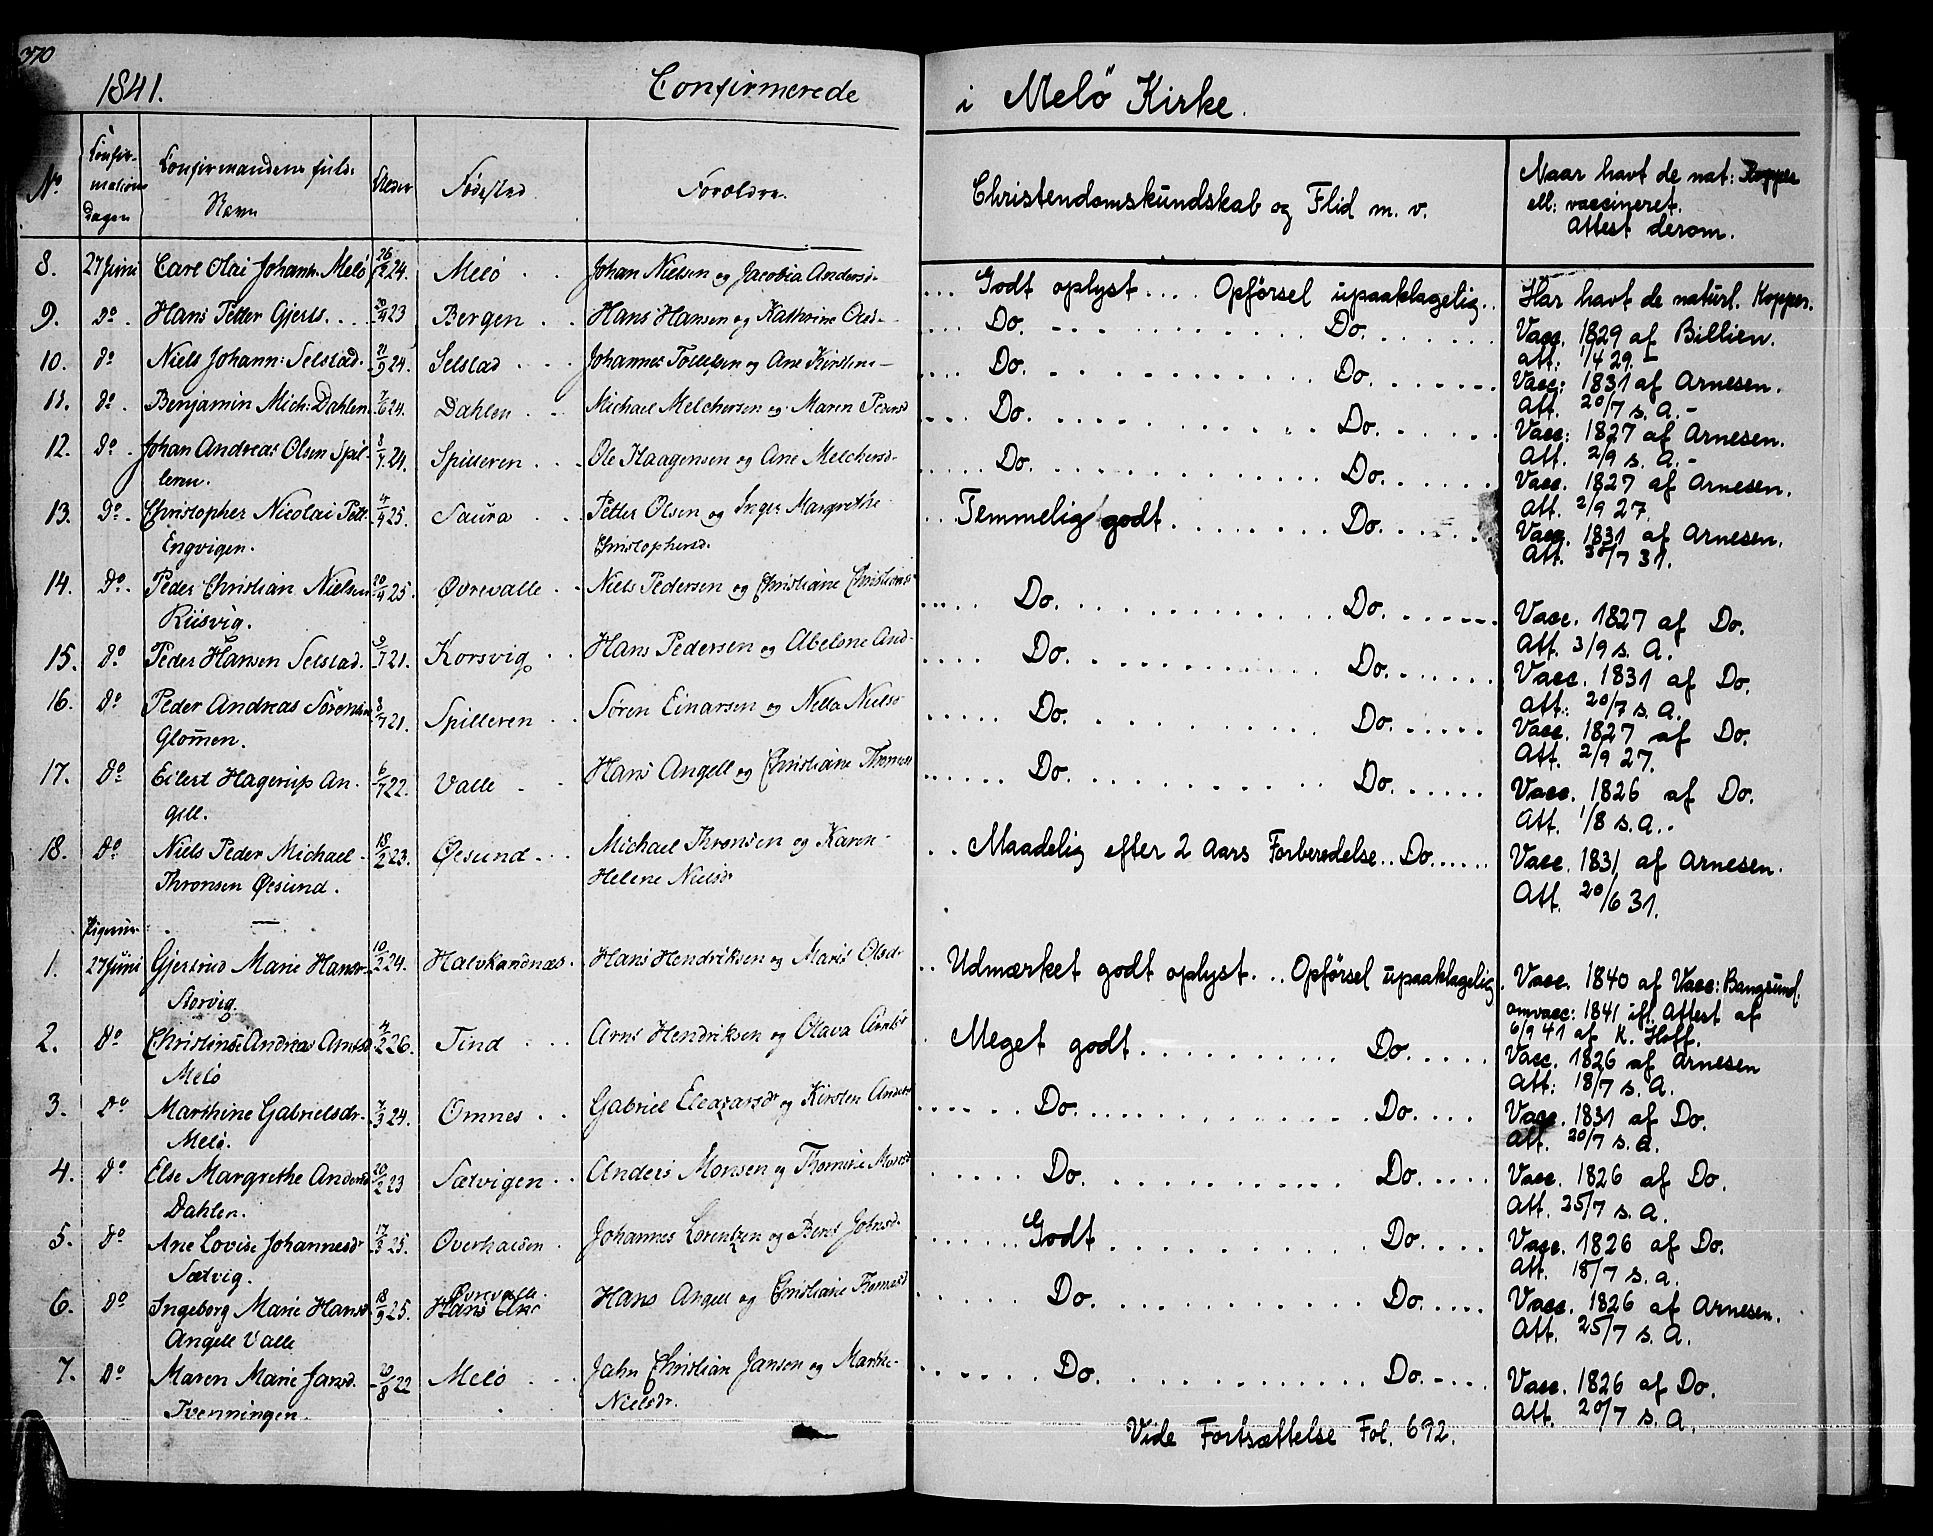 370
1841. Confirmerede i Melö Kirke.
No Confirmations dagen Confirmandens fulde Navn Alder Födested Forældre. Christendomskundskab og Flid m. v. Naar havt de nat: Kopper
ell: vaccineret.
Attest derom.
8. 27 Juni Carl Olai Johann. Melö 24. Melö Johan Nielsen og Jacobia Andersd. Godt oplyst Opförsel upaaklagelig. Har havt de naturl. Kopper.
9. Do Hans Petter Gjerts 23 Bergen Hans Hansen og Kathrine Olsd. Do. Do. Vacc. 1829 af Billien.
Att. 1/4 29.
10. Do Niels Johann: Selstad. 21/9 24. Selstad Johannes Tollefsen og Ane Kirstine Do. Do. Vacc: 1831 af Arnesen.
Att. 20/7 s. A.
11. Do Benjamin Mich: Dahlen 7/6 24. Dahlen Michael Melchersen og Maren Pedersd Do. Do. Vacc: 1827 af Arnesen.
Att. 2/9 s. A.
12. Do Johan Andreas Olsen Spil- 24. Spilderen Ole Haagensen og Ane Melchersd. Do. Do. Vacc. 1827 af Arnesen.
leren. Att. 2/9 27.
13. Do Christopher Nicolai Pett. 4/4 25. Saura Petter Olsen og Inger Margrethe Temmelig godt Do. Vacc. 1831 af Arnesen.
Engvigen. Christophersd. Att. 30/7 31.
14. Do Peder Christian Nielsen 20/4 25. Øvrevalle Niels Pedersen og Christiane Christiansd Do. Do. Vacc. 1827 af Do.
Riisvig. Att. 3/9 s. A.
15. Do Peder Hansen Selstad. 21. Korsvig Hans Pedersen og Abelone And- Do. Do. Vacc. 1831 af Do.
Att: 20/7 s. A.
16. Do Peder Andreas Sörensen 8/7 21. Spilderen Sören Einarsen og Nella Nielsd Do. Do. Vacc. 1827 af Do.
Glom̄en. Att. 2/9 27.
17. Do Eilert Hagerup An- 6/7 22. Valle Hans Angell og Christiane Thomasd Do. Do. Vacc. 1826 af Do.
gell. Att. 1/8 s. A.
18. Do Niels Peder Michael 18/2 23. Øesund Michael Thronsen og Karen Maadelig efter 2 Aars Forberedelse Do. Vacc. 1831 af Arnesen.
Thronsen Øesund. Helene Nielsd Att. 20/6 31.
Pigerne
1. 27 Juni Gjertrud Marie Hansd- 10/2 24. Halvkandnæs Hans Hendriksen og Maris Olsd. Udmærket godt oplyst. Opförsel upaaklagelig. Vacc. 1840 af Vacc: Bangsund.
Storvig. omvacc: 1841 ifl. Attest af
6/9 41 af K. Hoff.
2. Do Christine Andrea Arntsd 4/2 26. Tind Arnt Hendriksen og Olava Arntsd Meget godt Do. Vacc. 1826 af Arnesen
Melö Att: 18/7 s. A.
3. Do Marthine Gabrielsdr. 7/3 24. Omnes Gabriel Eleazarsdr og Kirsten Andersd Do. Do. Vacc. 1831 af Do.
Melö. Att. 20/7 s. A.
4. Do Else Margrethe Andersd 20/2 23 Sætvigen Anders Monsen og Thomine Monsd Do. Do. Vacc. 1826 af Do.
Dahlen. Att. 25/7 s. A.
5. Do Ane Lovise Johannesdr 17/3 25. Overhalden Johannes Lorentzen og Berit Johnsd. Godt Do. Vacc. 1826 af Do.
Sætvig. Att. 18/7 s. A.
6. Do Ingeborg Marie Hansd 18/9 25. Øvrevalle Hans Angell og Christiane Thomasd Do. Do. Vacc. 1826 af Arnesen.
Angell Valle Hans An Att. 25/7 s. A.
7. Do Maren Marie Jansd. 20/8 22 Melö Jahn Christian Jansen og Marthe Do. Do. Vacc. 1826 af Do.
Tvenningen. Nielsdr. Att. 20/7 s. A.
Vide Fortsættelse Fol. 692.